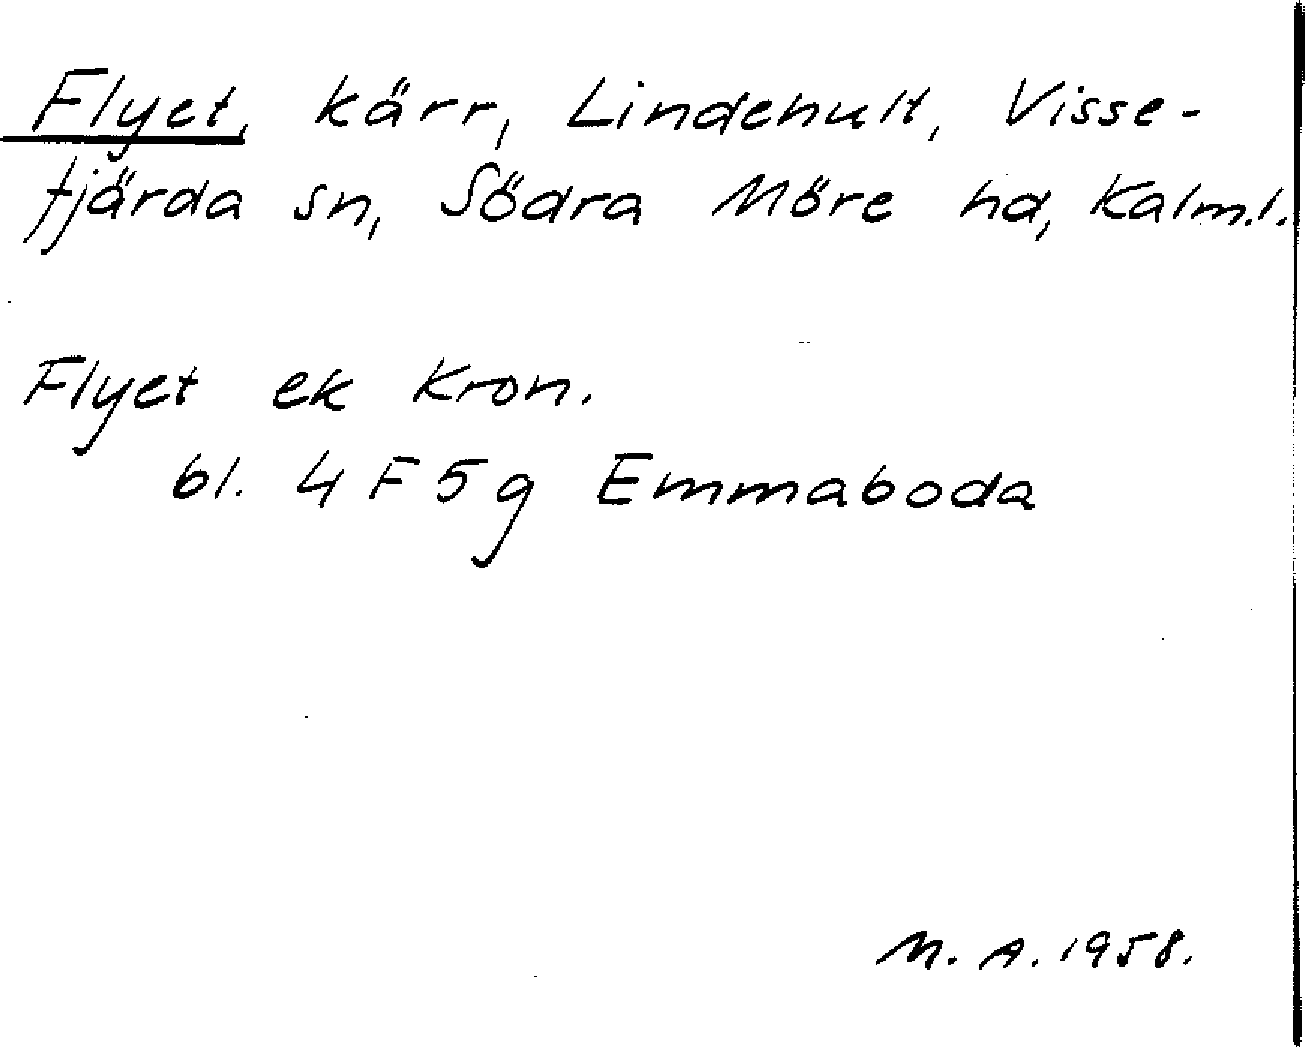 Flyet, kärr, Lindehult, Visse-
fjärda sn, Södra Möre hd, Kalm.l.
Flyet ek Kron.
bl. 4 F 5 g Emmaboda
M. A. 1958.